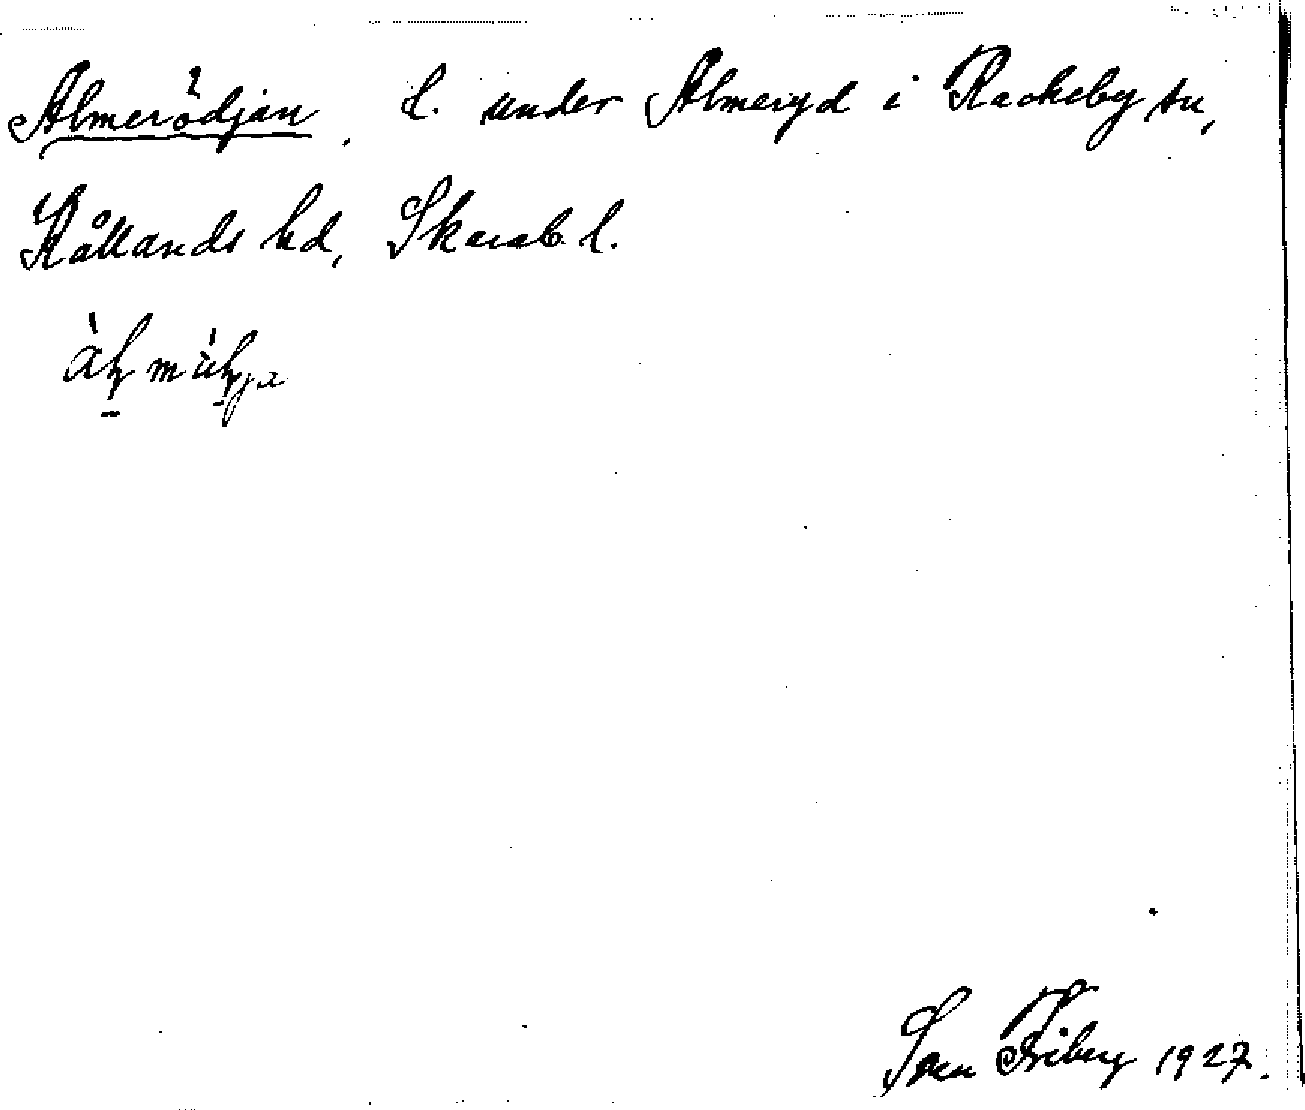 Almerödjan, l. under Almeryd i Rackeby sn,
Kållands hd, Skarab. l.
Sven Friberg 1927.